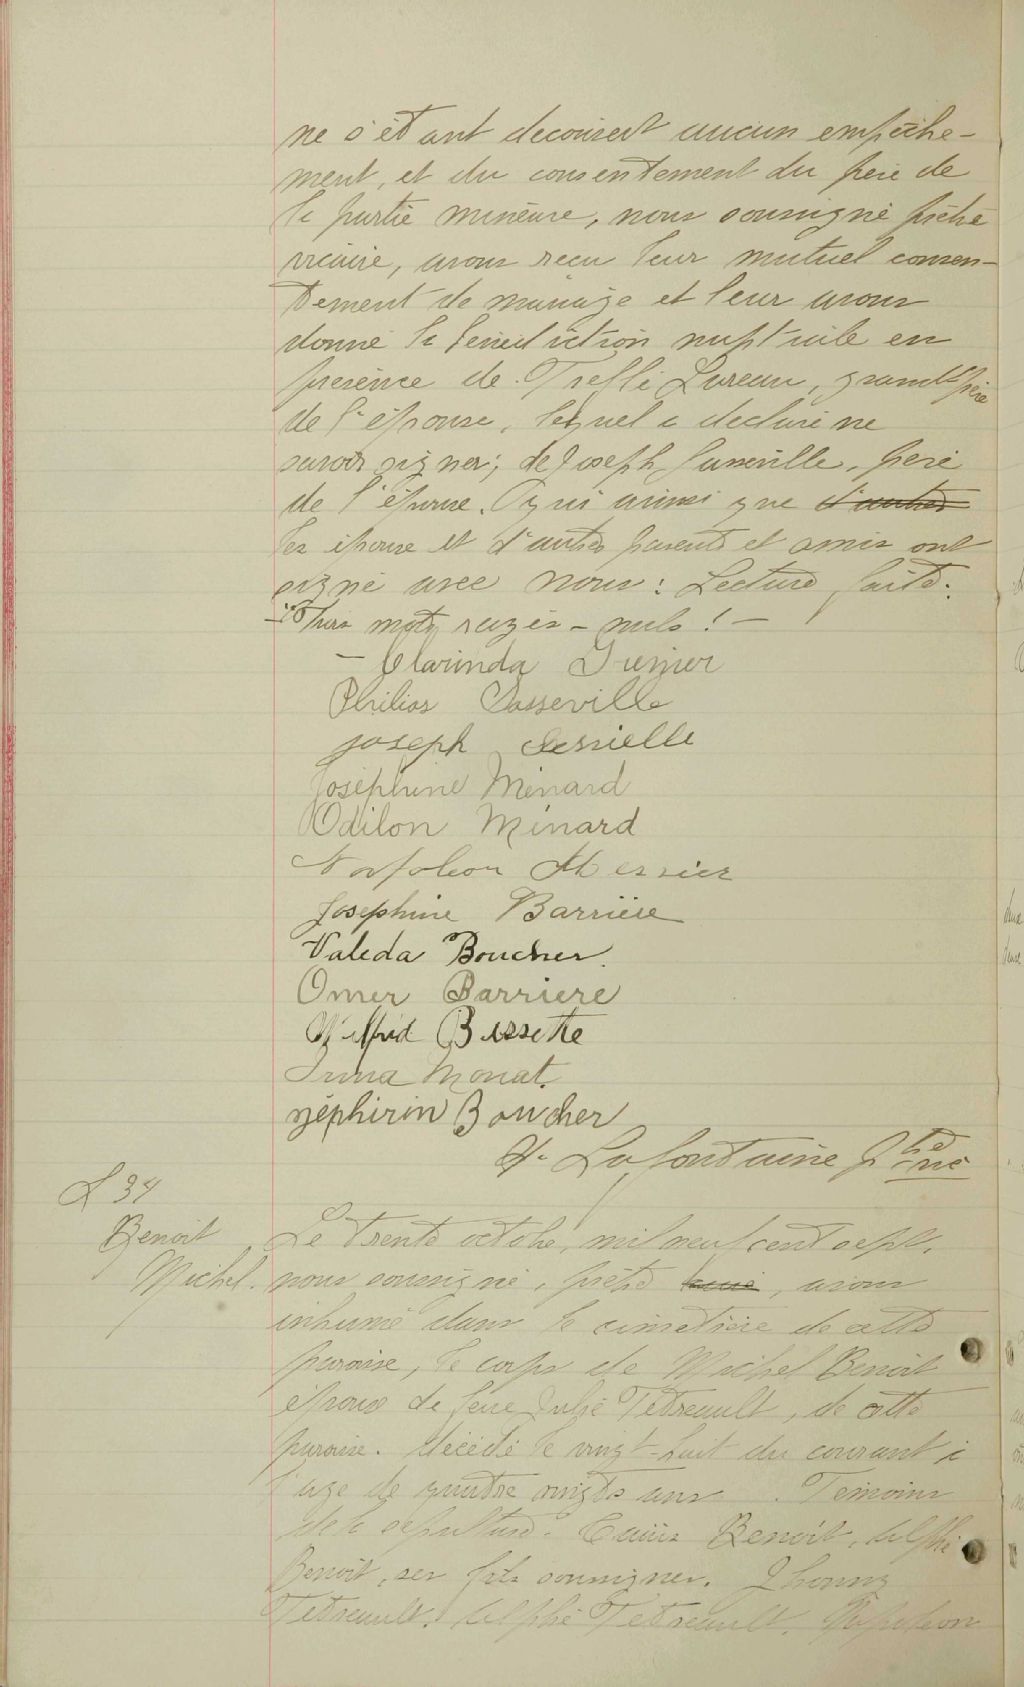 ne s'étant decouvert aucun empêche-
ment, et du consentement du père de
la partie mineure, nous soussigné prêtre
vicaire, avons reçu leur mutuel consen-
tement de mariage et leur avons
donné la bénédiction nuptiale en
présence de Trefflé Lareau, grand-père
de l'épouse, lequel a déclaré ne
savoir signer; de Joseph Sasseville, père
de l'époux. Qui ainsi que d'autres
les époux et d'autres parents et amis ont
signé avec nous: Lecture faite.
mots rayés - nuls! -
- Clarinda Grenier
Philias Sasseville
Joseph
Joséphine Ménard
Odilon Ménard
Napoleon Messier
Josephine Barrière
Valeda Boucher.
Omer Barriere
Wilfrid Bissette
Irma Monat.
Zéphirin Boucher
Lafontaine Ptre
S 34
Benoit
Michel.
Le trente octobre, mil neuf cent sept,
nous soussigné, prêtre curé, avons
inhumé dans le cimetière de cette
paroisse, le corps de Michel Benoit
époux de feue Julie Tétreault, de cette
paroisse. décédé le vingt-huit du courant à
l'age de quatre vingts ans. Témoins
de la sépulture. Benoit, Delphis
Benoit, ses fils soussignés.
Tetreault. Delphis Tetreault. Napoleon